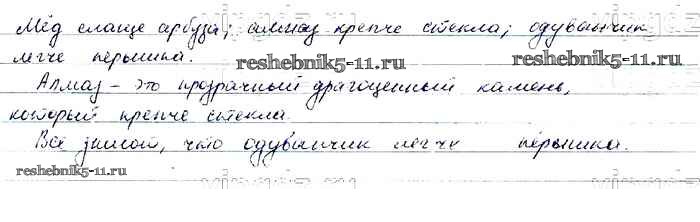 Мёд слаще арбуза; алмаз крепче стекла; одуванчик
легче пёрышка.
reshebnik5-11.ru reshebnik5-11.ru
Алмаз – это прозрачный драгоценный камень,
который крепче стекла.
Все знают, что одуванчик легче пёрышка.
reshebnik5-11.ru